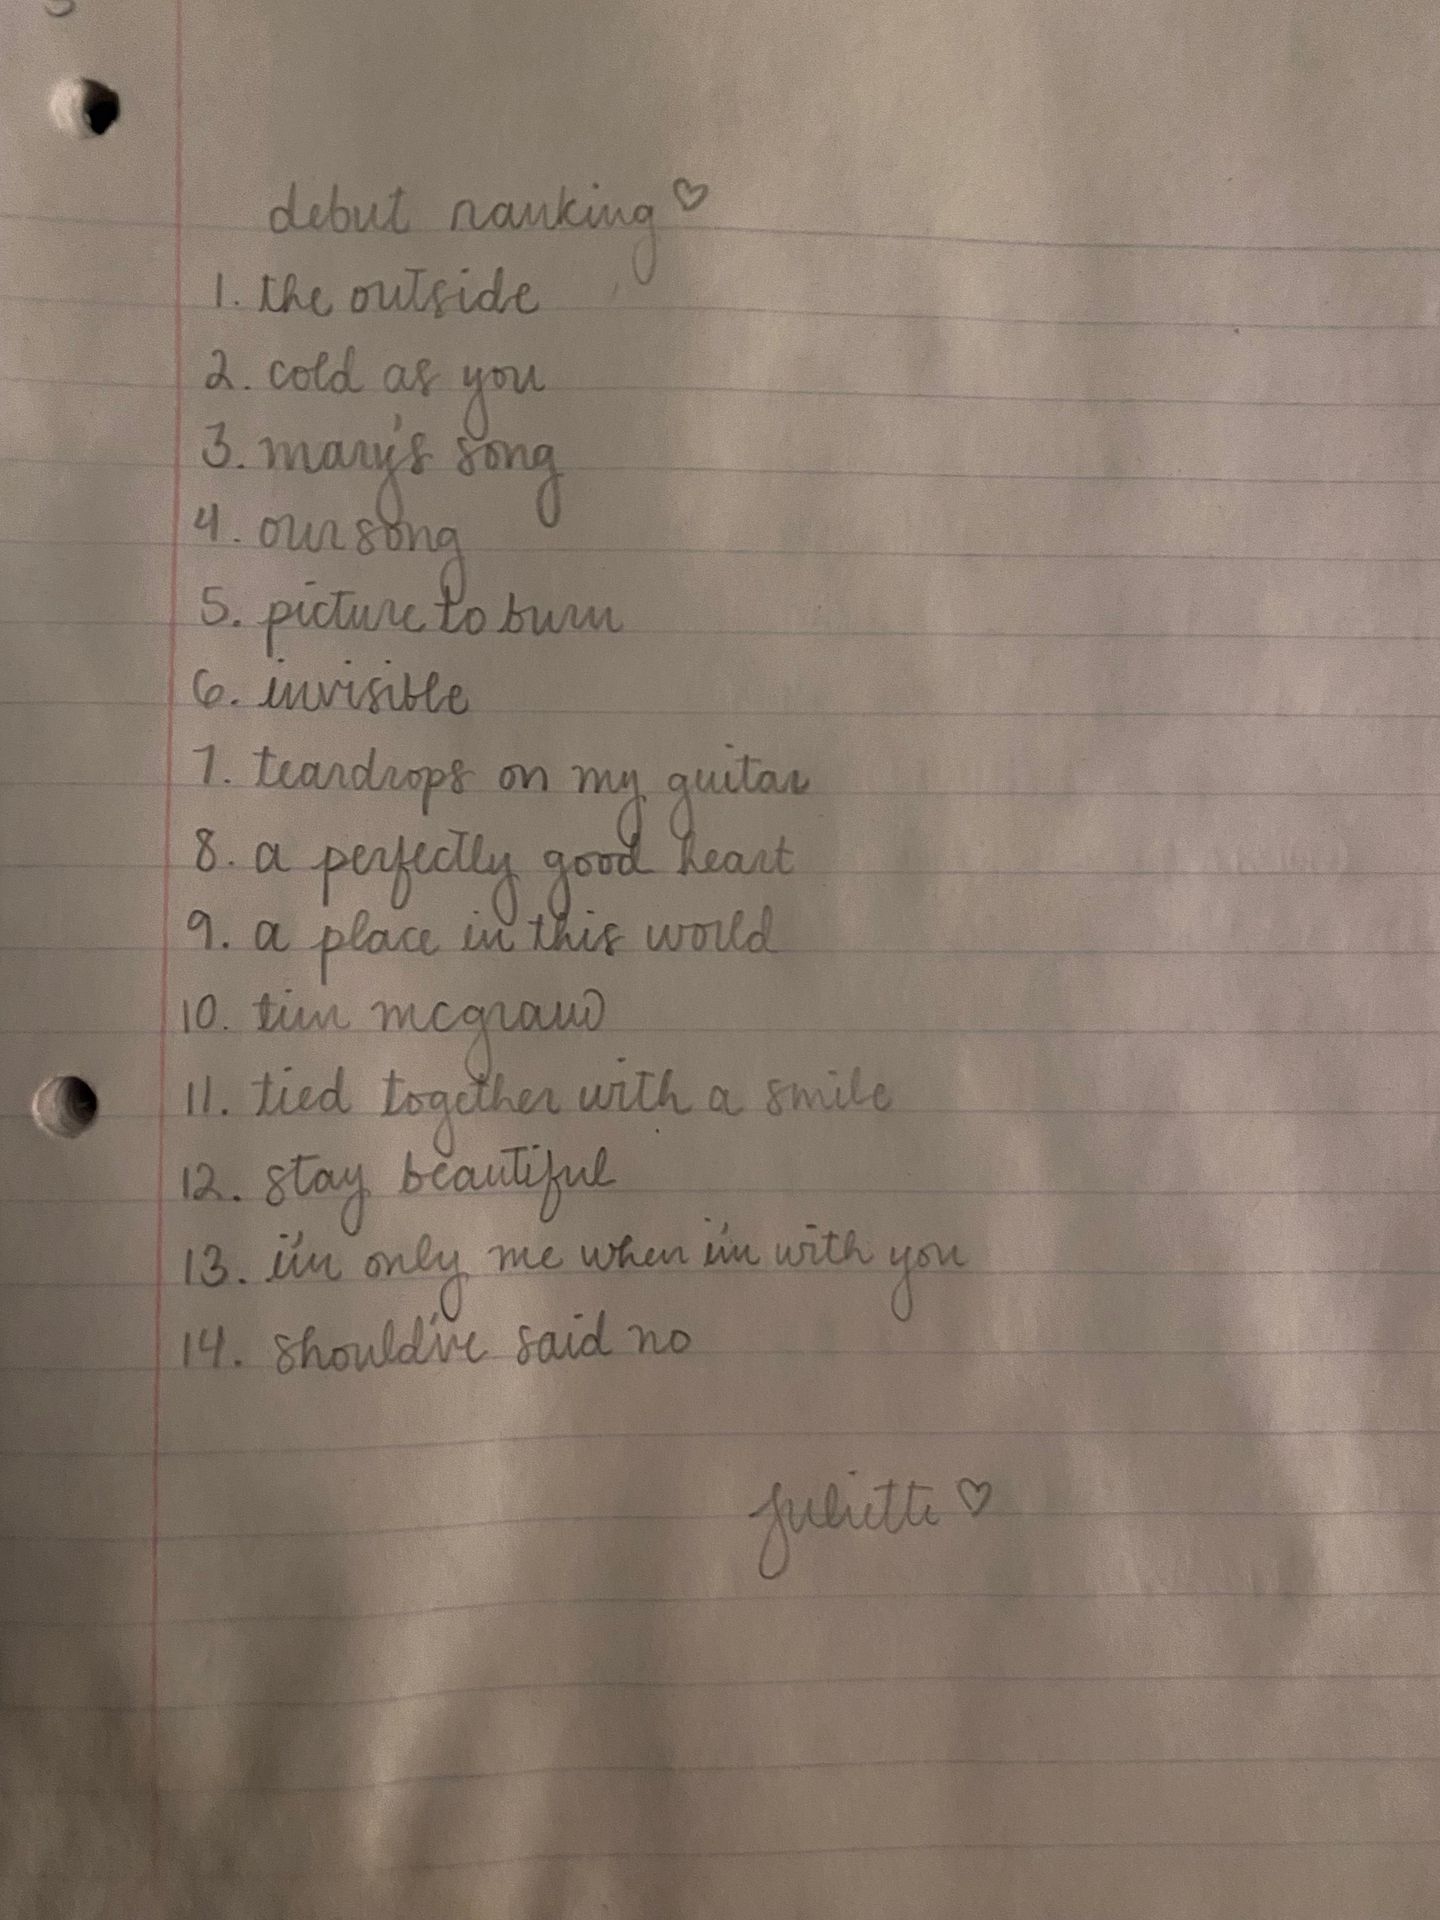 debut ranking ♡
1. the outside
2. cold as you
3. mary's song
4. our song
5. picture to burn
6. invisible
7. teardrops on my guitar
8. a perfectly good heart
9. a place in this world
10. tim mcgraw
11. tied together with a smile
12. stay beautiful
13. i'm only me when i'm with you
14. should've said no
juliette ♡